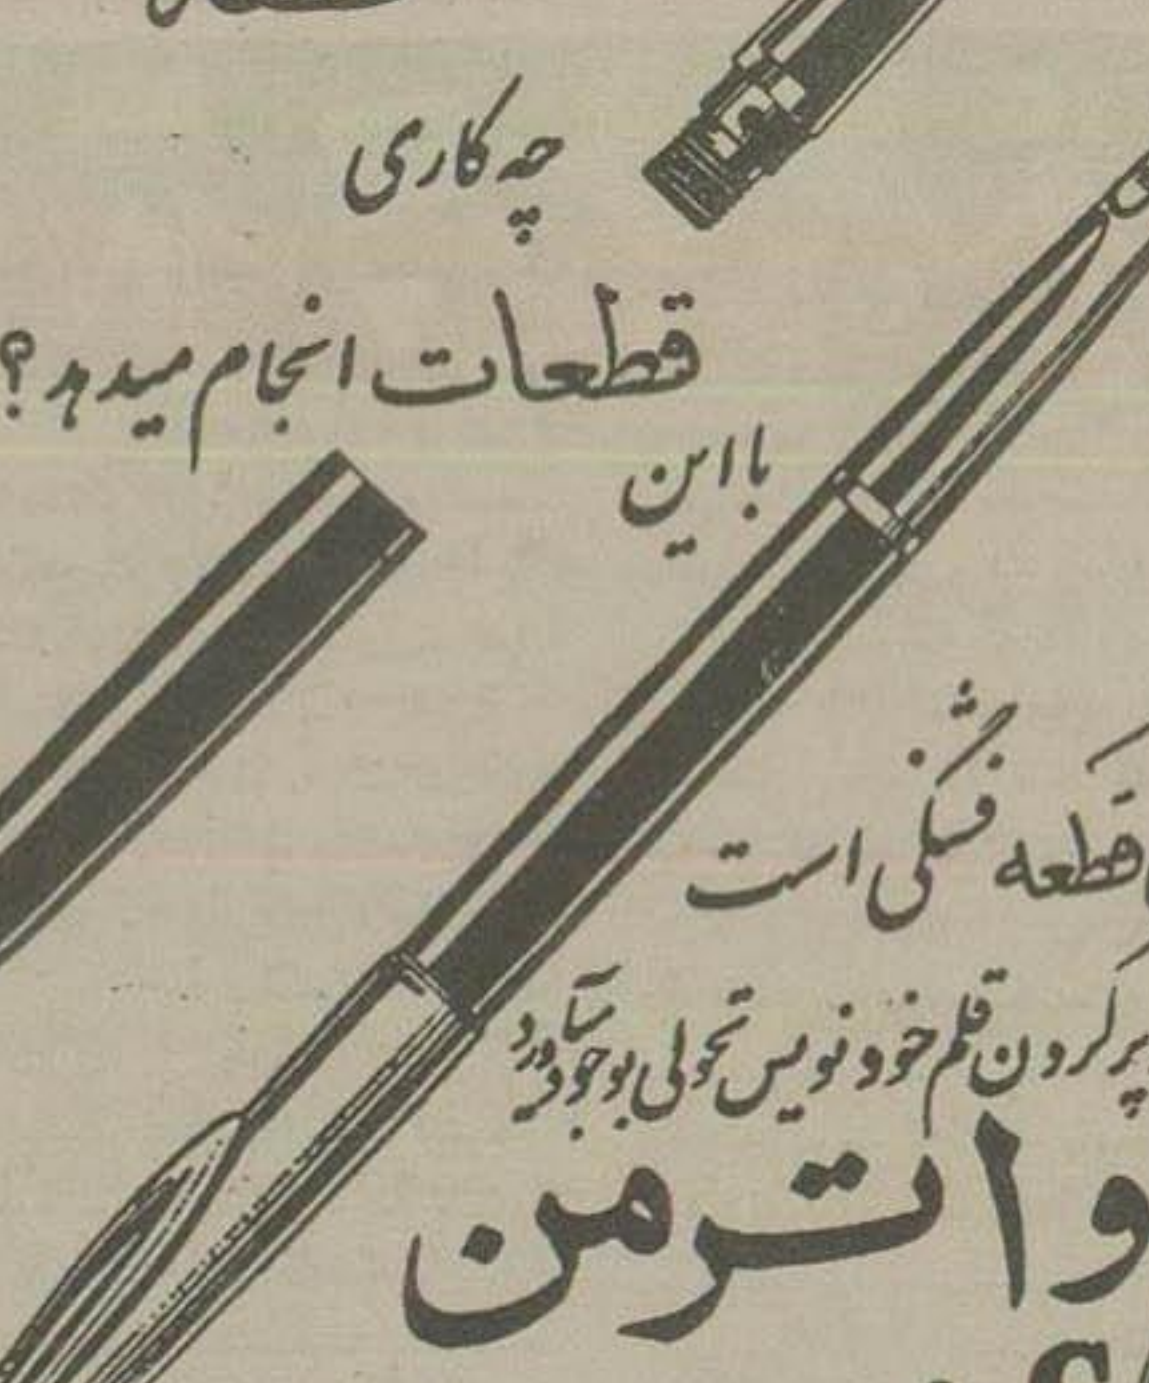 چه کاری
قطعات انجام میدهد؟
با این
قطعه فشنگی است
پر کردن قلم خودنویس تحولی بوجود میآورد
واترمن